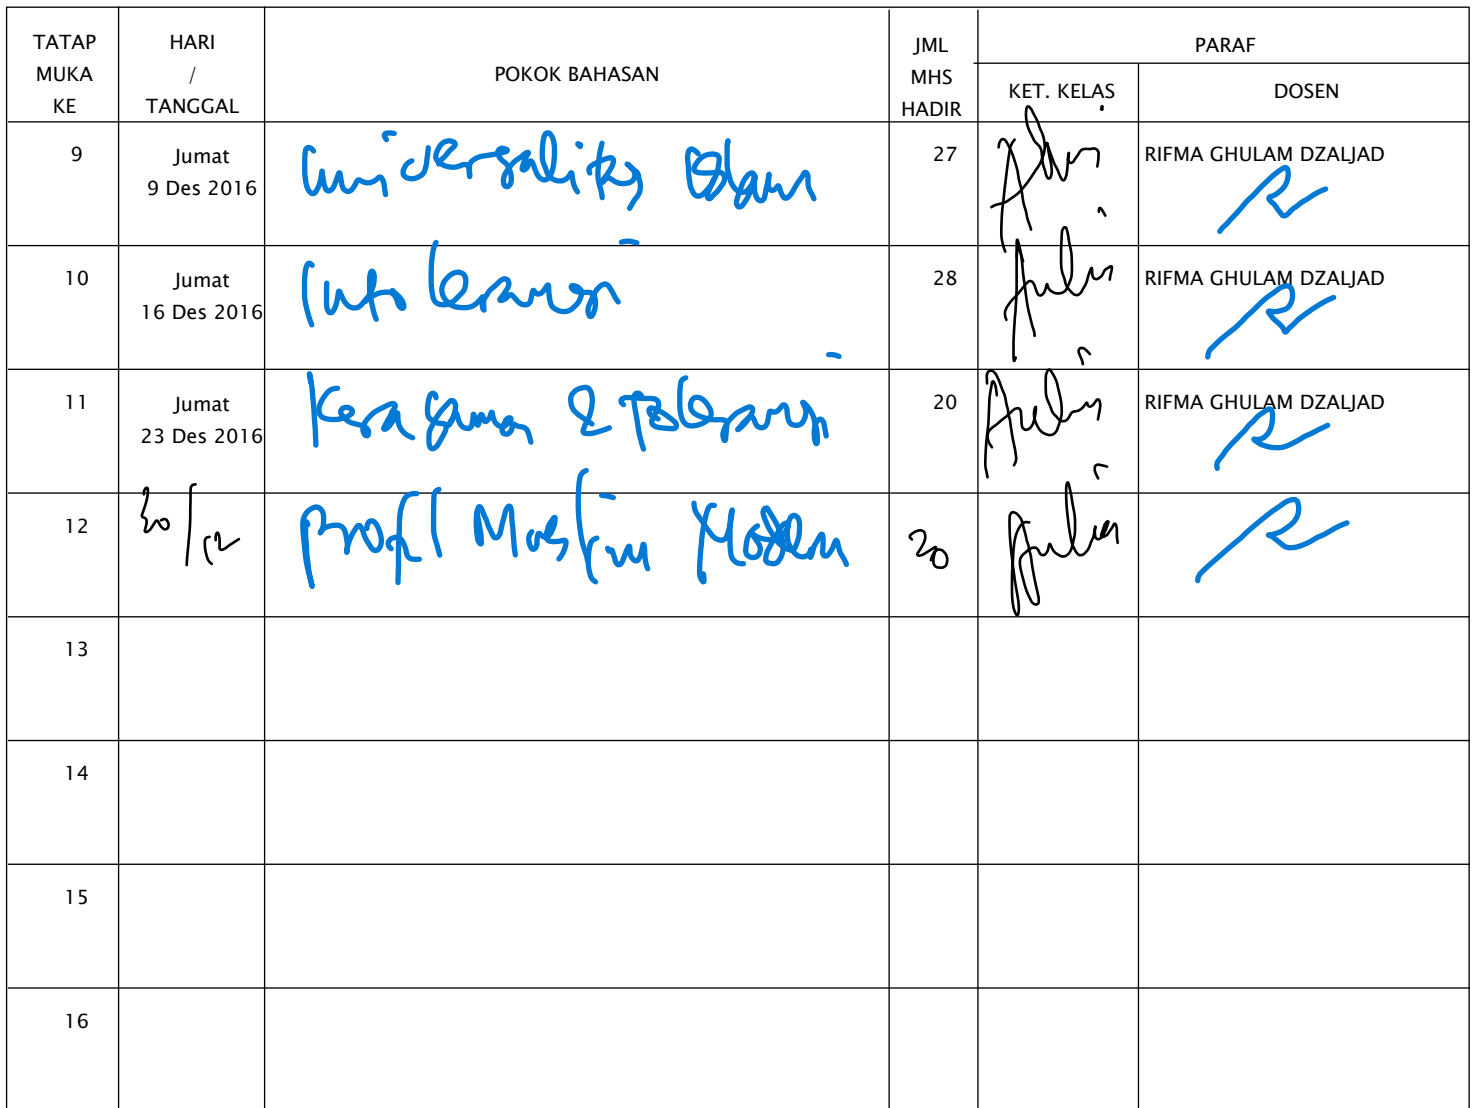 TATAP MUKA KE HARI / TANGGAL POKOK BAHASAN JML MHS HADIR PARAF
KET. KELAS DOSEN
9 Jumat 9 Des 2016 Universalitas Islam 27 RIFMA GHULAM DZALJAD
10 Jumat 16 Des 2016 Intoleransi 28 RIFMA GHULAM DZALJAD
11 Jumat 23 Des 2016 Keragaman & Toleransi 20 RIFMA GHULAM DZALJAD
12 30/12 Profil Muslim Modern
13
14
15
16